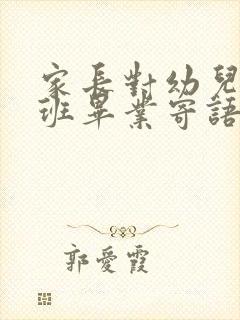 家長對幼兒
班畢業寄語
郭愛霞